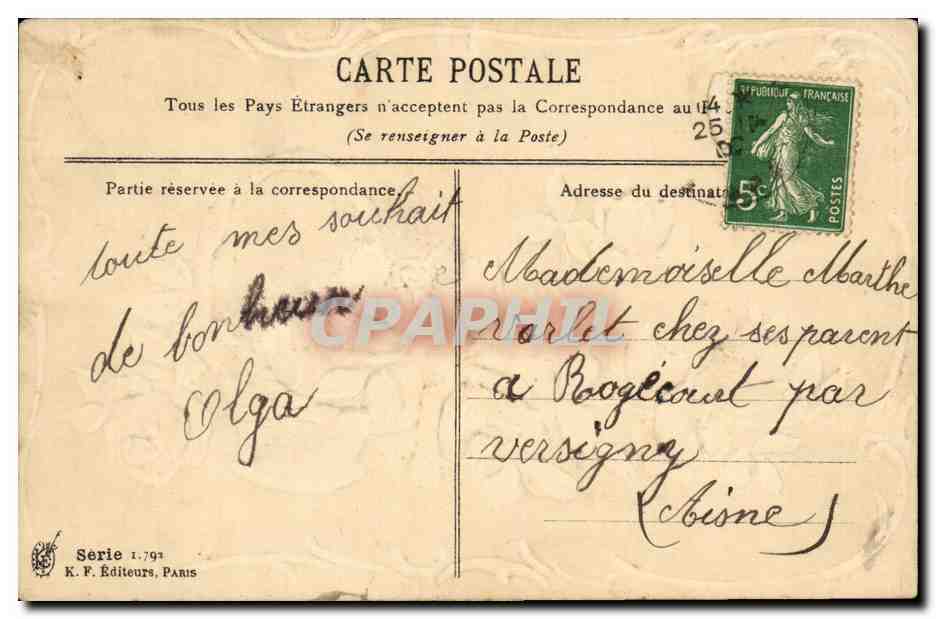 CARTE POSTALE
Tous les Pays Étrangers n'acceptent pas la Correspondance au
(Se renseigner à la Poste)
RÉPUBLIQUE FRANÇAISE
5c
POSTES
14
25
Partie réservée à la correspondance.
toute mes souhait
de bonheur
Olga
Adresse du destinat
Mademoiselle Marthe
varlet chez ses parent
a Rogécourt par
versigny
(Aisne)
CPAPHIL
Série 1.792
K. F. Éditeurs, PARIS